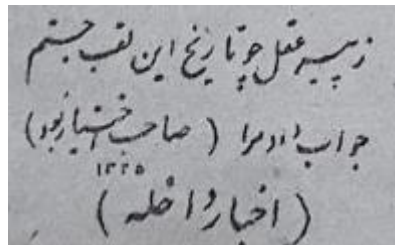 ز پیر عقل چو تاریخ این لقب جستم
جواب داد مرا (صاحب اختیار بود)
۱۳۲۵
(اخبار داخله)